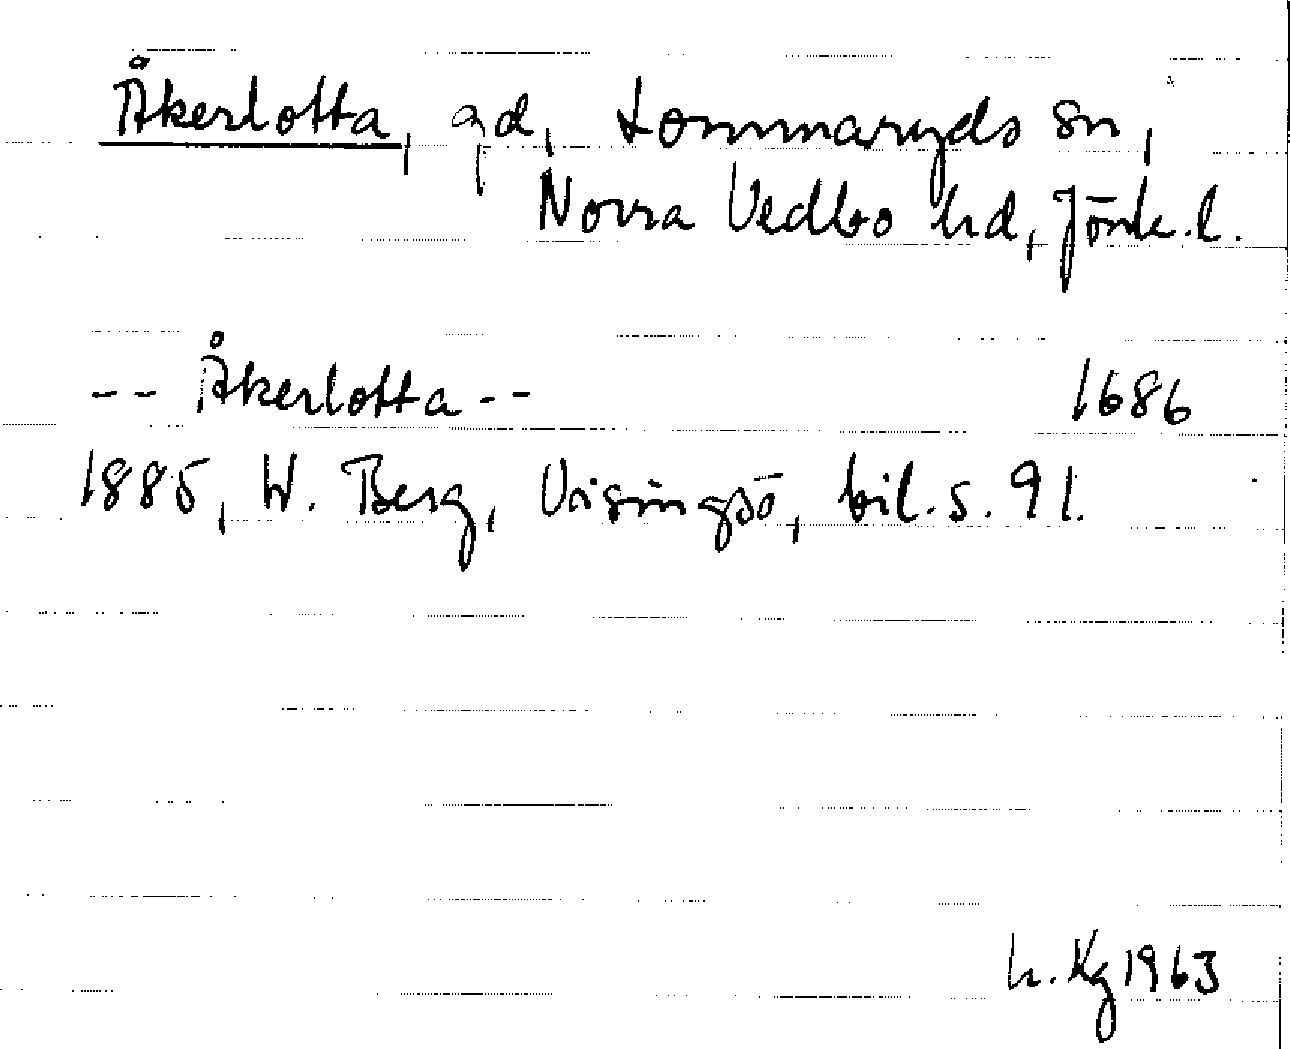 Åkerlotta, gd, Lommaryds sn,
Norra Vedbo hd, Jönk.l.
-- Åkerlotta -- 1686
1885, W. Berg, Visingsö, bil. s. 91.
h. Kg 1963